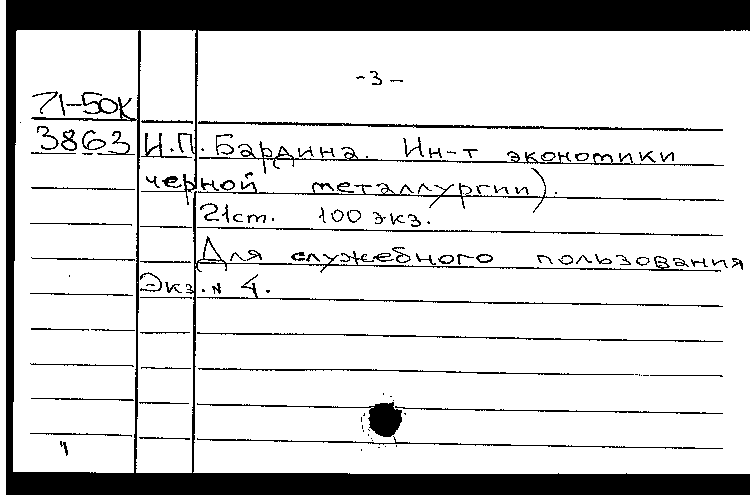 -3-
71-50К
3863 И.П. Бардина. Ин-т экономики
черной металлургии).
21ст. 100 экз.
Для служебного пользования
Экз. № 4.